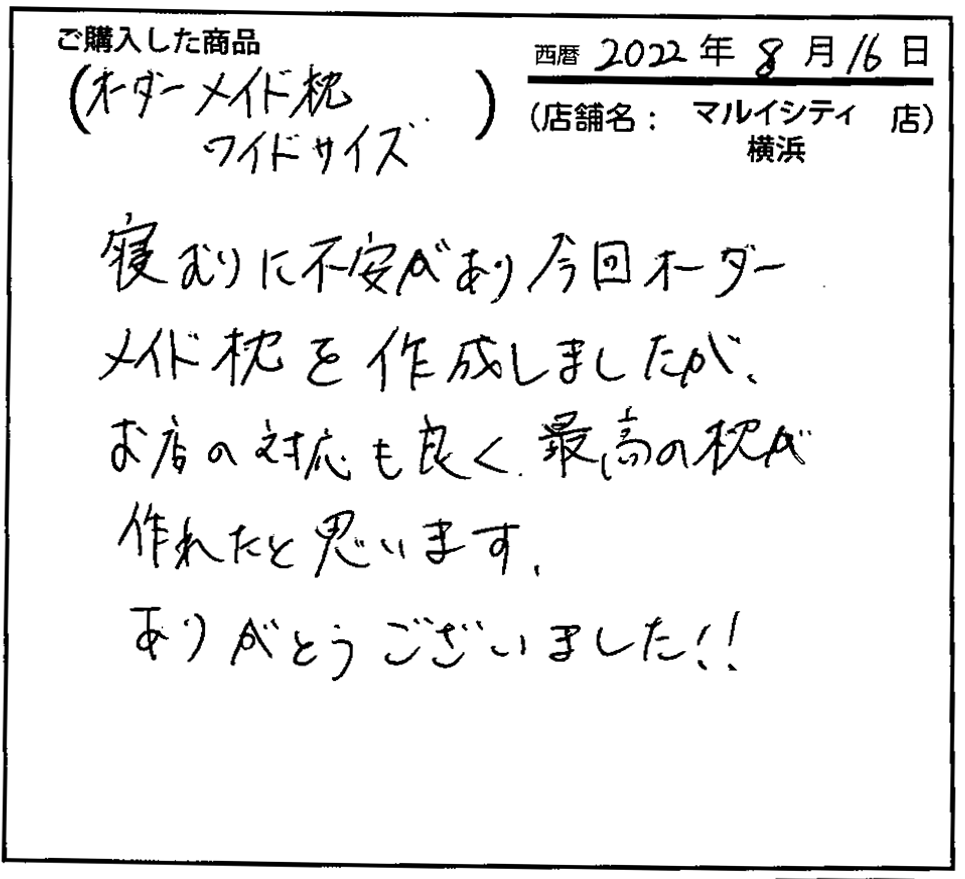 ご購入した商品
(オーダーメイド枕
ワイドサイズ)
西暦 2022年 8月16日
(店舗名: マルイシティ 店)
横浜
寝むりに不安があり今回オーダー
メイド枕を作成しましたが、
お店の対応も良く、最高の枕が
作れたと思います。
ありがとうございました!!